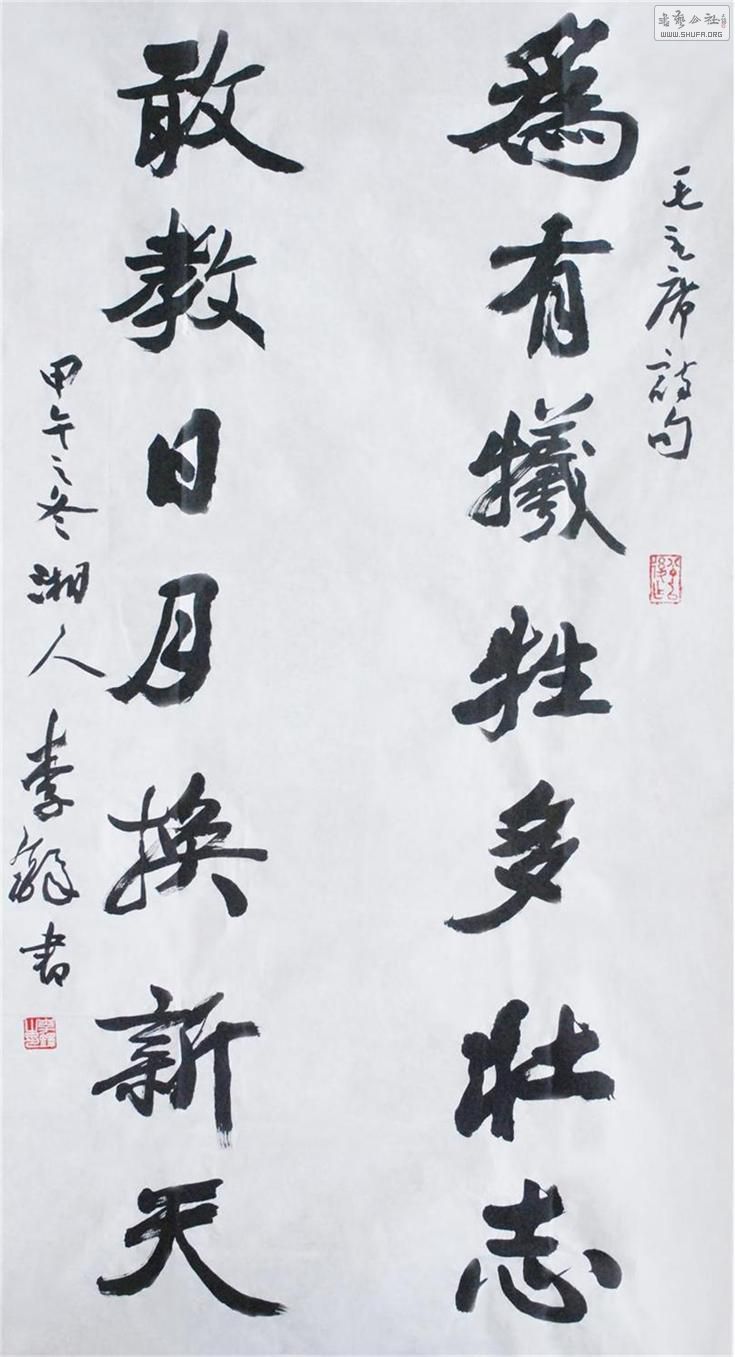 毛主席詩句
為有犧牲多壯志
敢教日月換新天
甲午之冬湘人
李 書
書藝公社
WWW.SHUFA.ORG